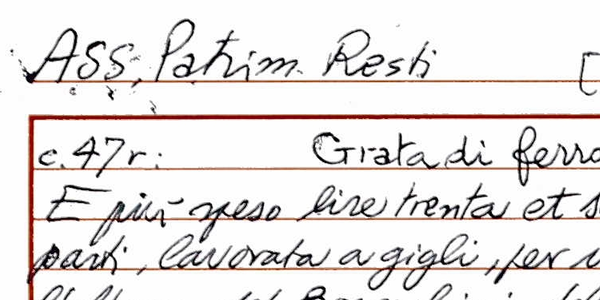 ASS, Patrim. Resti [
c. 47r: Grata di ferro
E più speso lire trenta et s
parti, lavorata a gigli, per